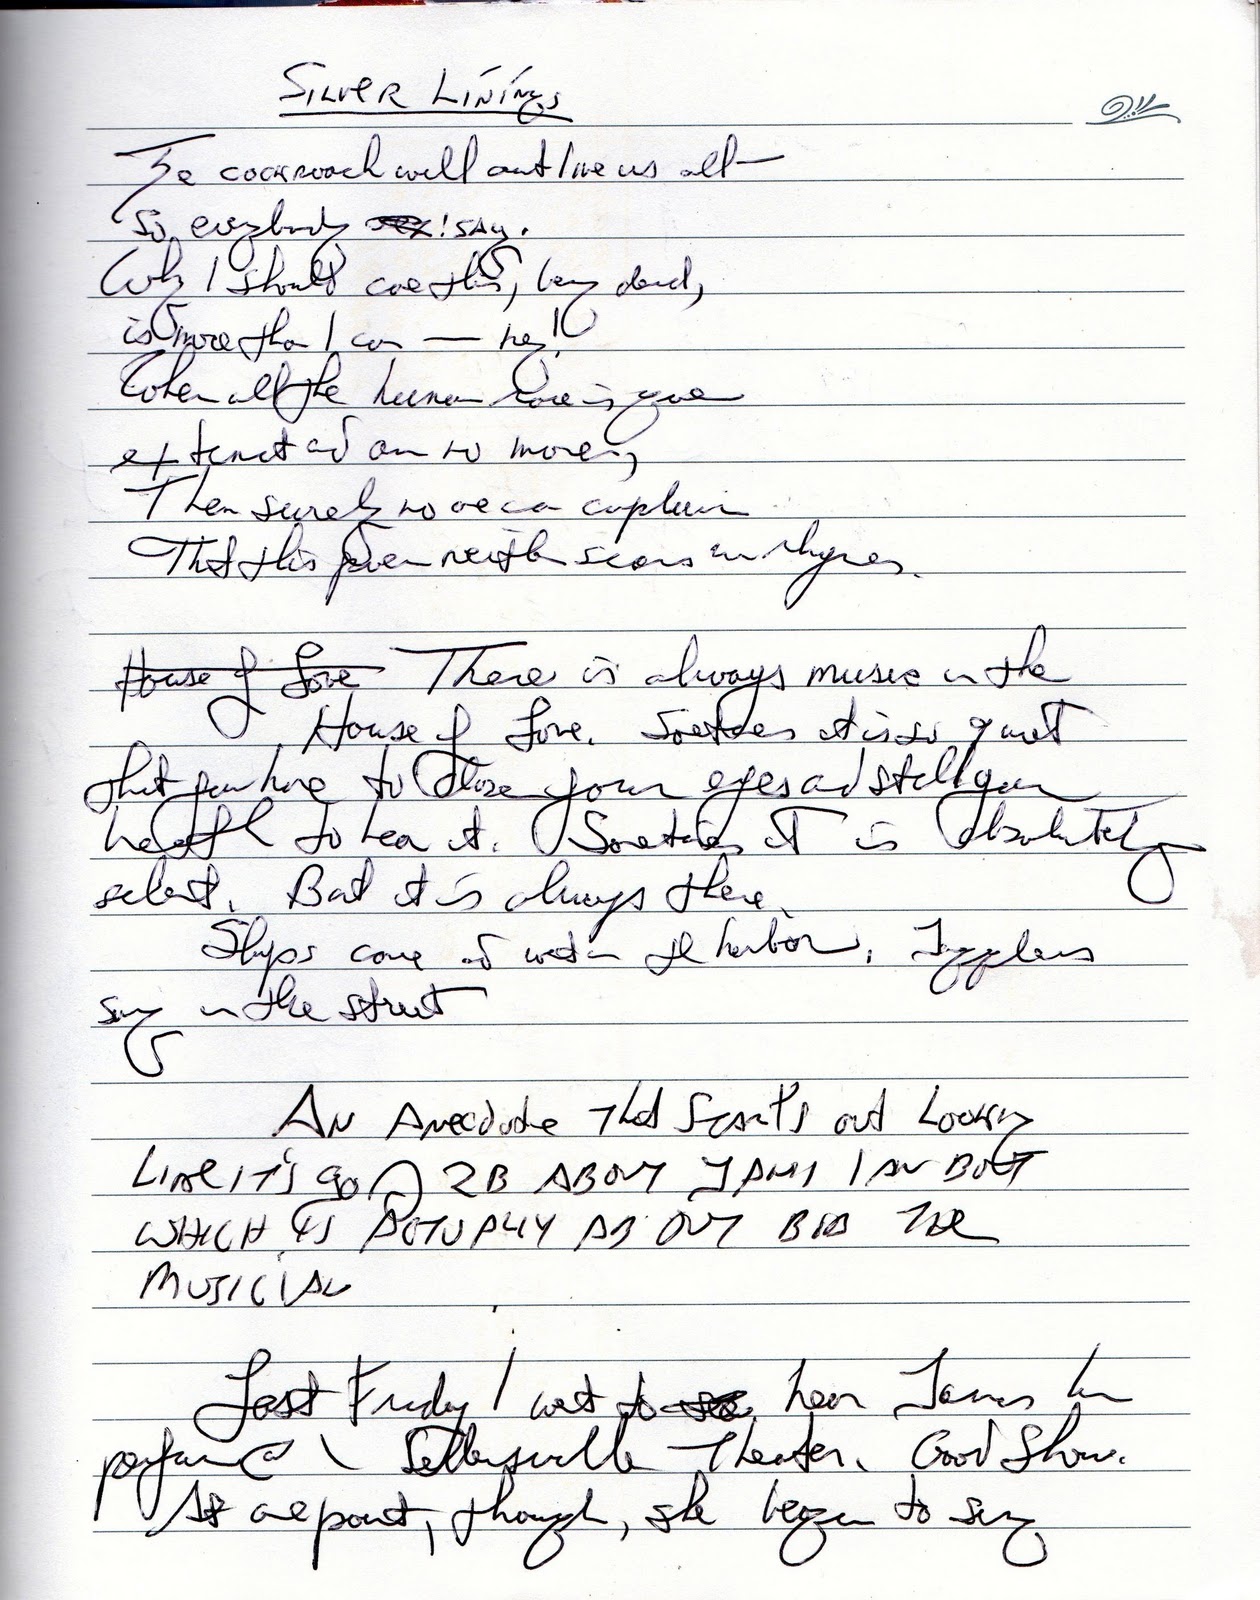 Silver Linings
The cockroach will outlive us all—
so everybody say.
Why I should care this, being dead,
is more than I can — hey!
When all the human race is gone
extinct and are no more,
Then surely no one can explain
That this poem neither scans nor rhymes.
House of Love There is always music in the
House of Love. Sometimes it is so quiet
that you have to close your eyes and still your
breath to hear it. Sometimes it is absolutely
silent. But it is always there.
Ships come and in the harbor. Jugglers
sing in the street
An Anecdote That Starts out Looking
Like it's going 2B ABOUT JANIS IAN BUT
WHICH IS ACTUALLY ABOUT THE
MUSICIAN
Last Friday I went to hear Janis Ian
perform Sellersville Theater. Good show.
At one point, though, she began to sing